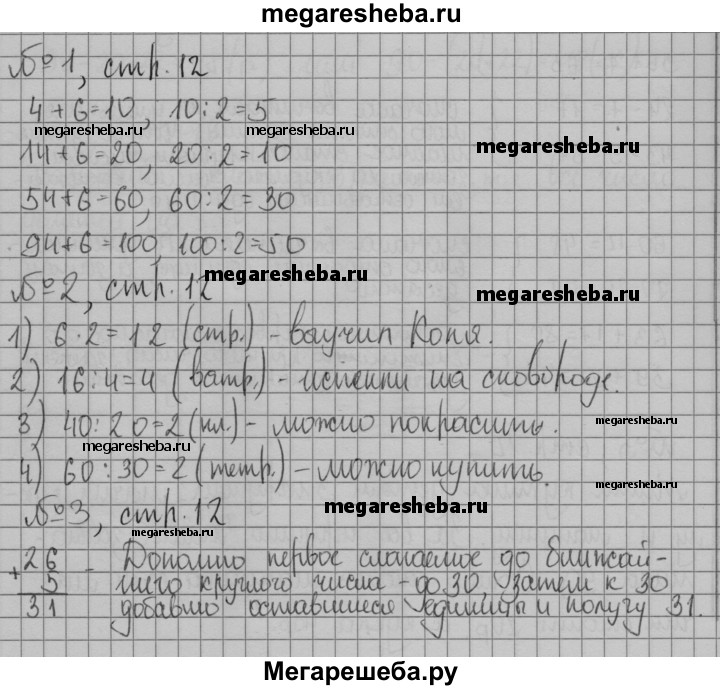 megaresheba.ru
№1, стр. 12
4+6=10, 10:2=5
megaresheba.ru megaresheba.ru
14+6=20, 20:2=10 megaresheba.ru
54+6=60, 60:2=30
94+6=100, 100:2=50
megaresheba.ru
№2, стр. 12 megaresheba.ru
1) 6·2=12 (стр.) - выучил Коля.
2) 16:4=4 (ватр.) - испекли на сковороде.
3) 40:20=2 (кл.) - можно покрасить. megaresheba.ru
megaresheba.ru
4) 60:30=2 (тетр.) - можно купить. megaresheba.ru
№3, стр. 12 megaresheba.ru
megaresheba.ru
26 - Дополню первое слагаемое до ближай-
+ 5 шего круглого числа - до 30, затем к 30
31 добавлю оставшиеся единицы и получу 31.
megaresheba.ru megaresheba.ru
Мегарешеба.ру